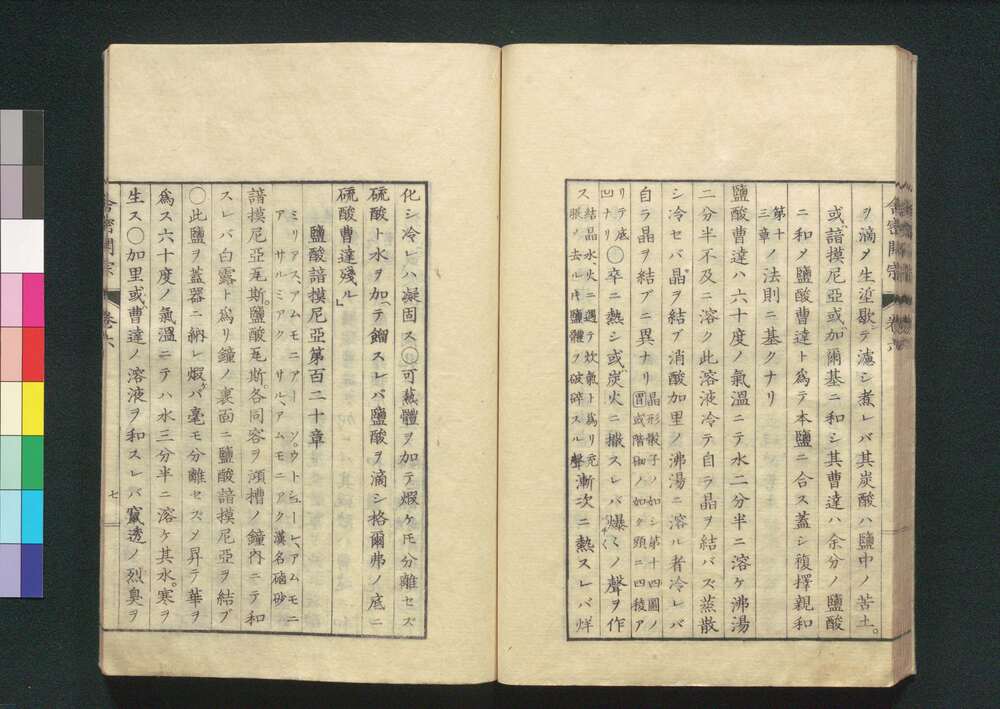 ヲ滴メ生塗歇テ濾シ煮レバ其炭酸ハ鹽中ノ苦土。
或諳摸尼亞或加爾基ニ和シ其曹達ハ余分ノ鹽酸
ニ和メ鹽酸曹達ト爲テ本鹽ニ合ス蓋シ複擇親和
第十三章ノ法則ニ基クナリ
鹽酸曹達ハ六十度ノ氣溫ニテ水二分半ニ溶ケ沸湯
二分半不及ニ溶ク此溶液冷テ自ラ晶ヲ結バズ蒸散
シ冷セバ晶ヲ結ブ消酸加里ノ沸湯ニ溶ル者冷レバ
自ラ晶ヲ結ブニ異ナリ晶形骰子ノ如シ第十四圖ノ或階砌ノ如ク頭ニ四稜ア
リテ底凹ナリ○卒ニ熱シ或炭火ニ撒スレバ爆ミノ聲ヲ作
ス結晶水火ニ遇テ炊氣ト爲リ充脹ノ去ル片鹽體ヲ破碎スル聲漸次ニ熱スレバ烊
舍密開宗 卷六
化シ冷レハ凝固ス○可蒸體ヲ加テ煆ケ𪜈分離セズ
硫酸ト水ヲ加ヘテ餾スレバ鹽酸ヲ滴シ格爾弗ノ底ニ
硫酸曹達殘ル」
鹽酸諳摸尼亞第百二十章
ミリアス、アムモニアー ソウトシューレ、アムモニ
ア サルミアク サリ、アムモニアク 漢名磠砂
諳摸尼亞瓦斯。鹽酸瓦斯。各同容ヲ澒槽ノ鐘內ニテ和
スレバ白露ト爲リ鐘ノ裏面ニ鹽酸諳摸尼亞ヲ結ブ
○此鹽ヲ蓋器ニ納レ煆バ毫モ分離セズメ昇テ華ヲ
爲ス六十度ノ氣溫ニテハ水三分半ニ溶ケ其水。寒ヲ
生ス○加里或曹達ノ溶液ヲ和スレバ竄透ノ烈臭ヲ
舍密開宗 卷六 七